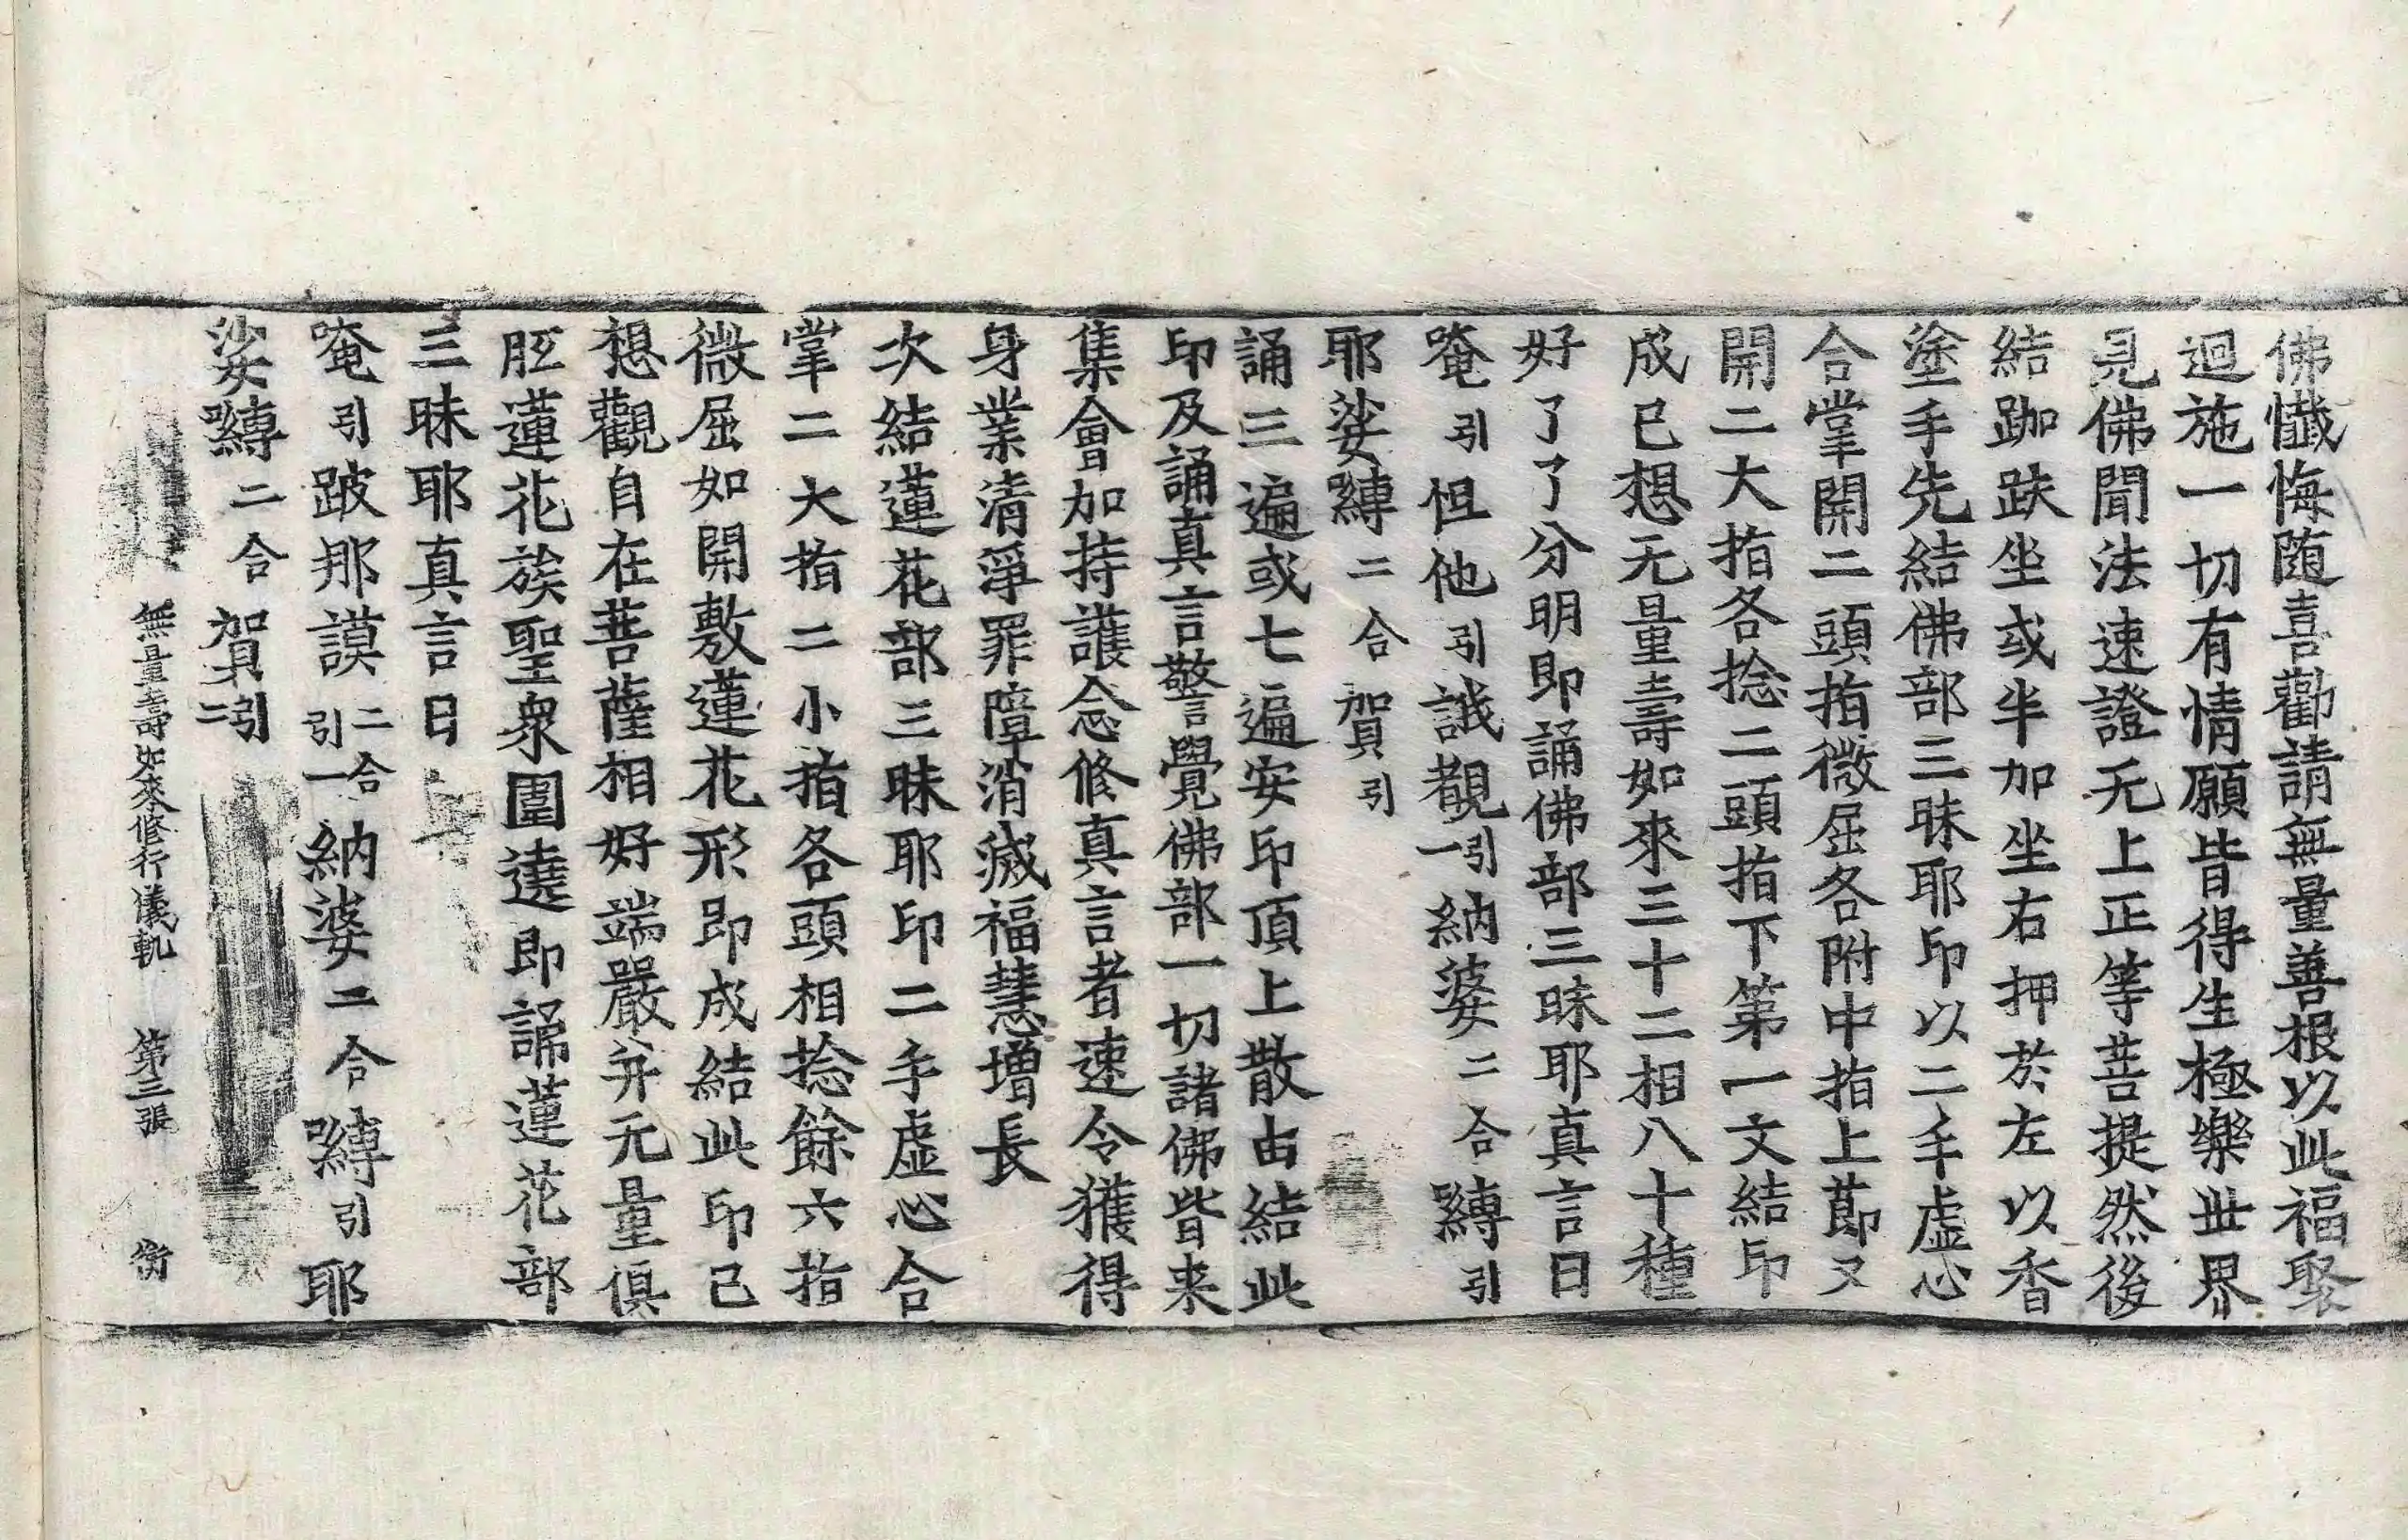 佛懺悔随喜勸請無量善根以此福聚
迴施一切有情願皆得生極樂世界
見佛聞法速證无上正等菩提然後
結跏趺坐或半加坐右押於左以香
塗手先結佛部三昧耶印以二手虚心
合掌開二頭指微屈各附中指上莭又
開二大指各捻二頭指下第一文結印
成已想无量壽如來三十二相八十種
好了了分明即誦佛部三昧耶真言曰
唵引怛他引誐覩引一納婆二合嚩引
耶娑嚩二合賀引
誦三遍或七遍安印頂上散由結此
印及誦真言警覺佛部一切諸佛皆来
集會加持護念修真言者速令獲得
身業清淨罪障消滅福慧增長
次結蓮花部三昧耶印二手虚心合
掌二大指二小指各頭相捻餘六指
微屈如開敷蓮花形即成結此印已
想觀自在菩薩相好端嚴并无量俱
胝蓮花族聖衆圍遶即誦蓮花部
三昧耶真言曰
唵引跛那謨二合引一納婆二合嚩引耶
娑嚩二合賀引二
無量壽如來修行儀軌 第三張 衡